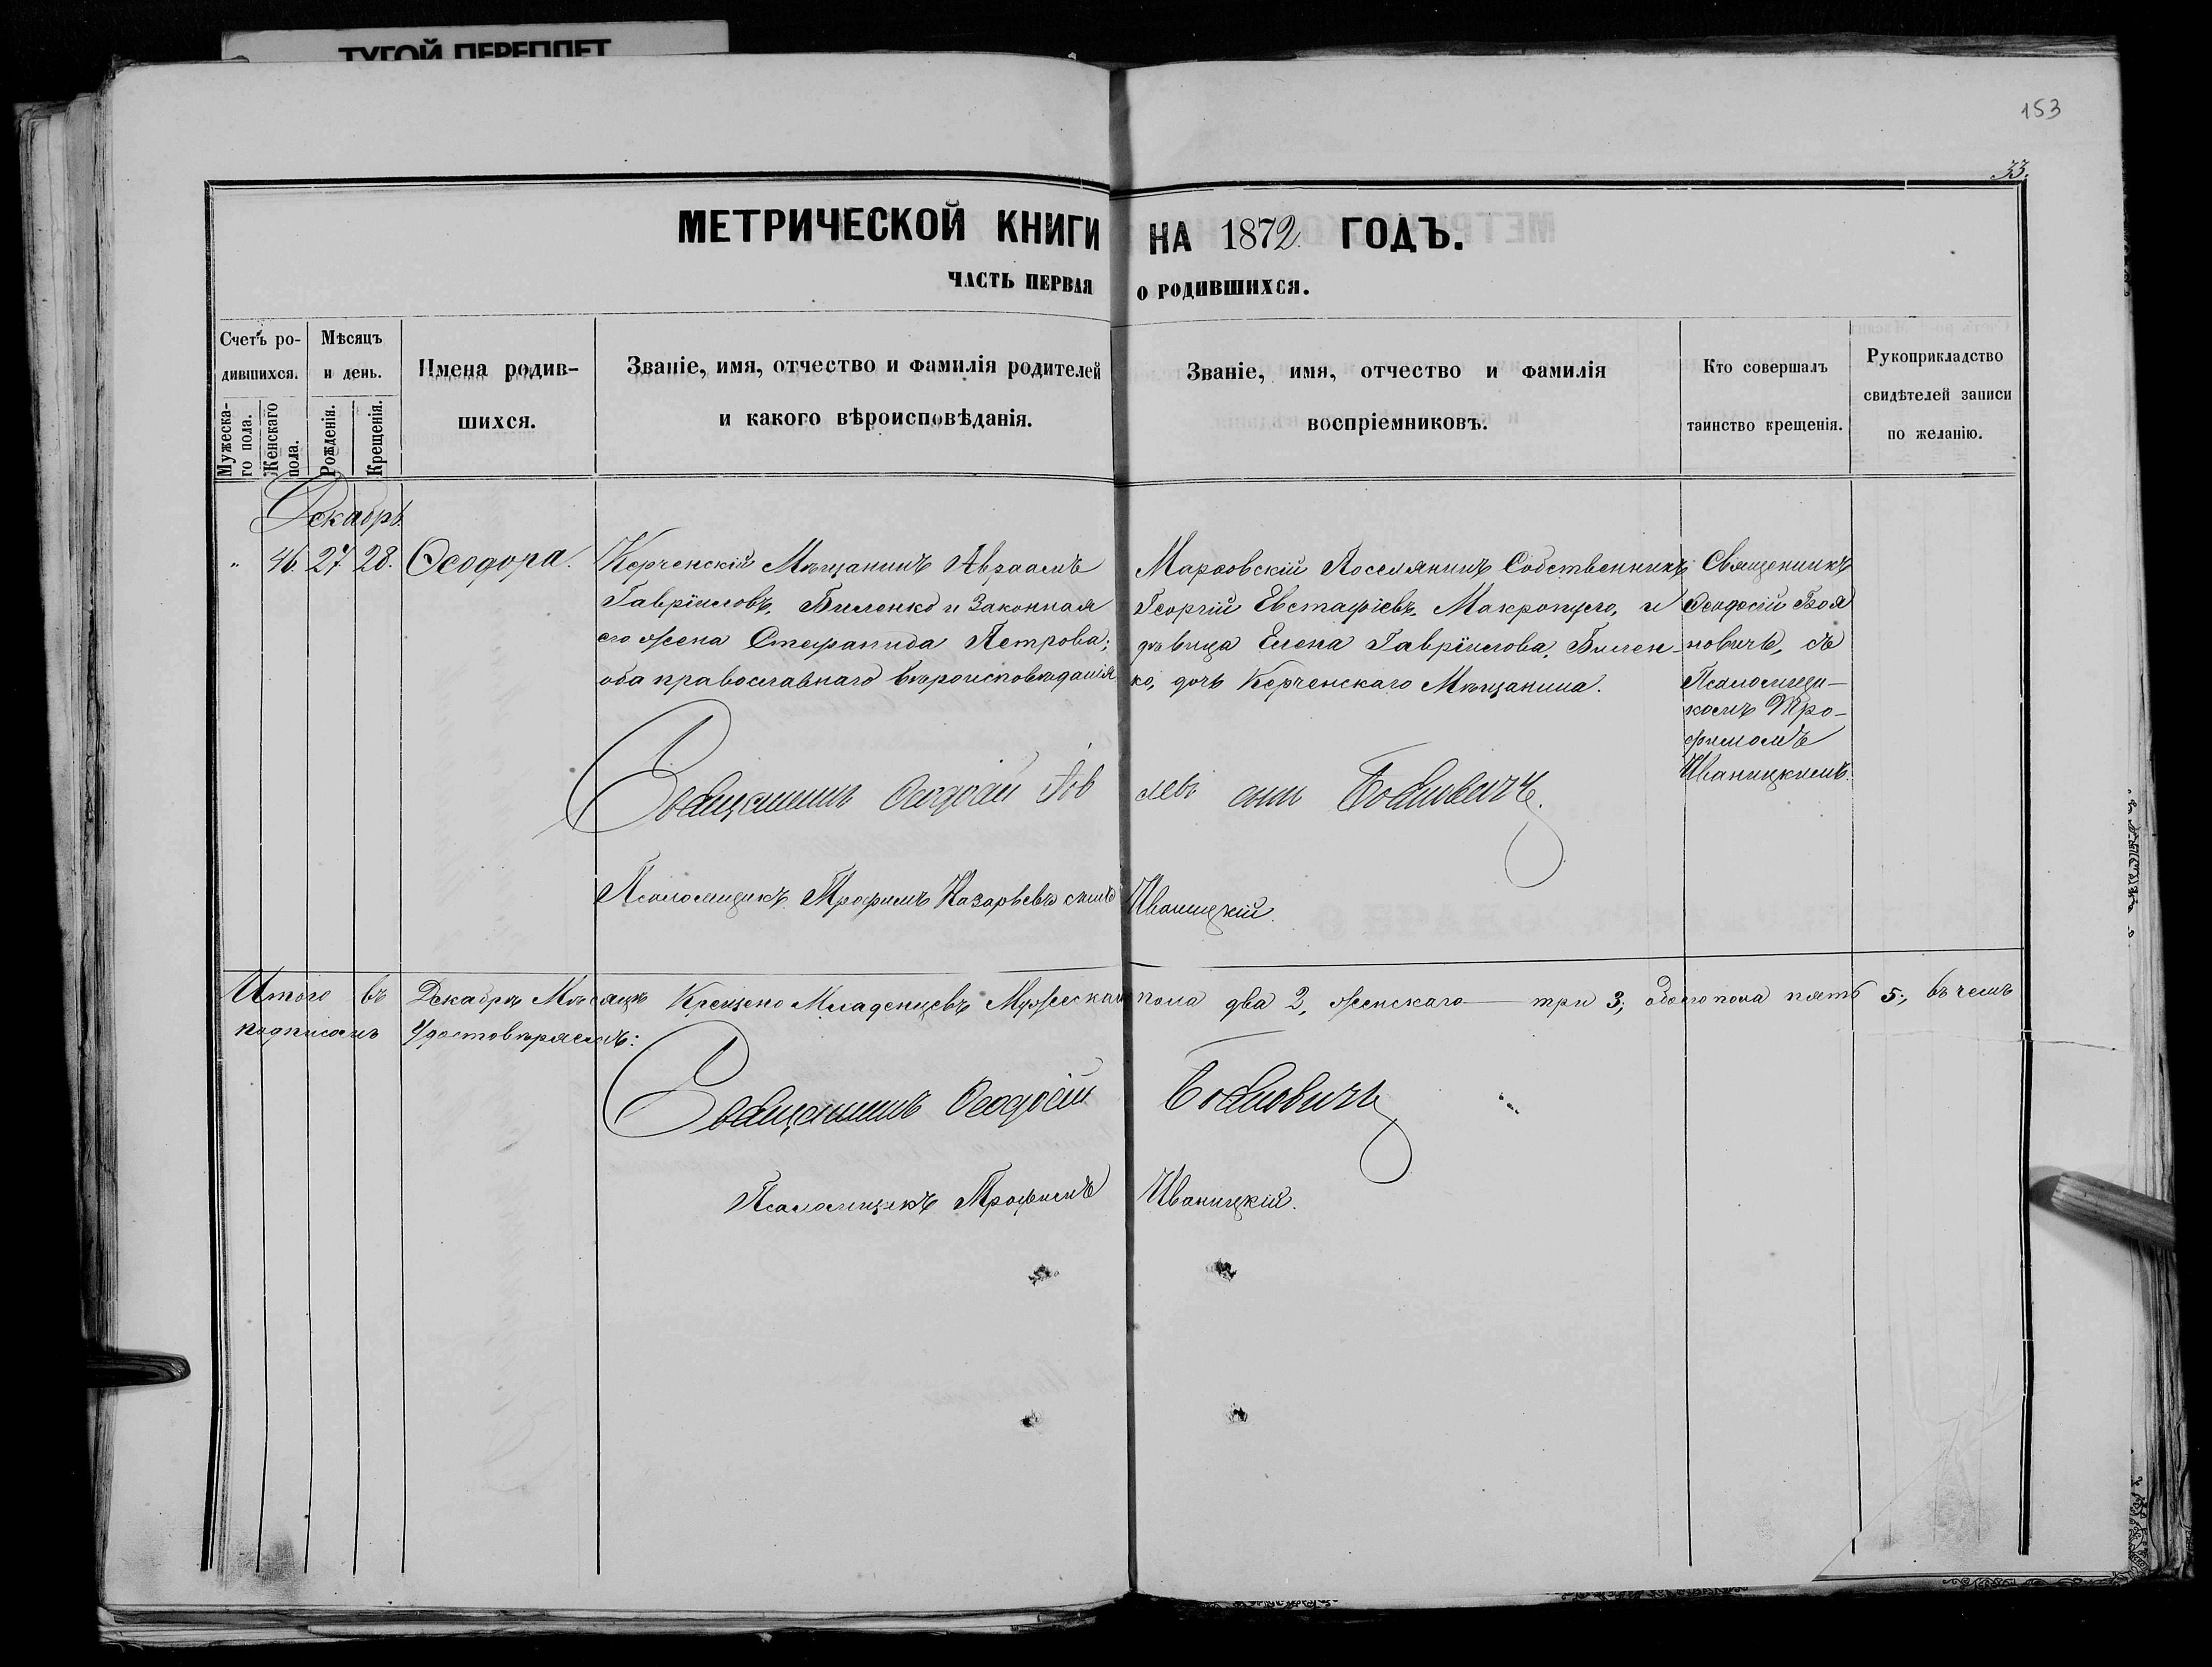 ТУГОЙ ПЕРЕПЛЕТ
153
33.
МЕТРИЧЕСКОЙ КНИГИ НА 1872 ГОДЪ.
ЧАСТЬ ПЕРВАЯ О РОДИВШИХСЯ.
Счетъ ро-
дившихся.
Мужеска-
го пола.
Женскаго
пола.
Мѣсяцъ
и день.
Рожденія.
Крещенія.
Имена родив-
шихся.
Званіе, имя, отчество и фамилія родителей
и какого вѣроисповѣданія.
Званіе, имя, отчество и фамилія
воспріемниковъ.
Кто совершалъ
таинство крещенія.
Рукоприкладство
свидѣтелей записи
по желанію.
Декабрь
" 46. 27 28. Ѳеодора.
Керченскій Мѣщанинъ Авраамъ
Гавріиловъ Биленко и Законная
его жена Стефанида Петрова;
оба православнаго вѣроисповѣданія
Поселянинъ Собственникъ
Георгій Евстафіевъ и
дѣвица Елена Гавріилова, Билен-
ко, дочь Керченскаго Мѣщанина.
Священникъ
Ѳеодосій Боя
новичъ, съ
Псаломщи-
комъ Тро-
фимомъ
Иваницкимъ.
Священникъ Ѳеодосій сынъ Бояновичъ.
Псаломщикъ Трофимъ Назарьевъ сынъ Иваницкій.
Итого въ Декабрѣ Мѣсяцѣ Крещено Младенцевъ Мужескаго пола два 2, женскаго — три 3; обоего пола пять 5; въ чемъ
подписомъ Удостовѣряемъ:
Священникъ Ѳеодосій Бояновичъ
Псаломщикъ Трофимъ Иваницкій.